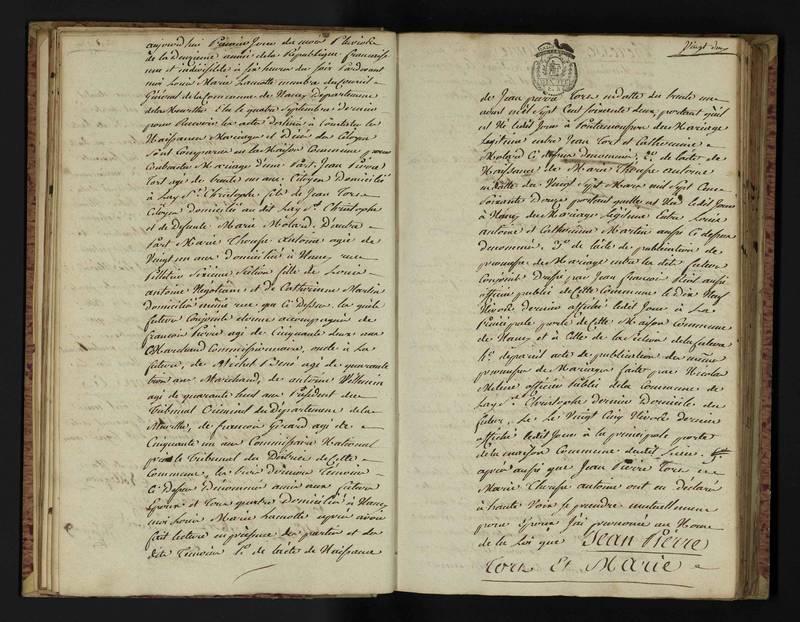 aujourd'hui Premier Jour du mois Pluviose
de la Deuxieme année de la République française
une et indivisible à six heures du soir Pardevant
moi Louis Marie Lamotte membre du Conseil
Général de la Commune de Nancy Département
de la Meurthe Elu le quatre Septembre dernier
pour Recevoir les actes destinés à Constater les
Naissances Mariages et Décès des Citoyens
Sont Comparus en la Maison Commune pour
Contracter Mariage d'une Part Jean Pierre
Tort agé de trente un ans Citoyen Domicilié
à Lay St Christophe fils de Jean Tort
Citoyen Domicilié au dit Lay St Christophe
et de Defunte Marie Molard. D'autre
Part Marie Therese Antoine agée de
Vingt un ans domiciliée à Nancy rue
Section fille de Louis
antoine Negotiant et de Catherine Martin
domiciliés même rue que Ci Dessus les quels
futurs Conjoints étoient accompagnés de
francois Pierre agé de Cinquante deux ans
Marchand Commissionnaire, oncle à la
future, de Michel agé de quarante
trois ans Marchand, de antoine Villemin
agé de quarante huit ans Président du
Tribunal Criminel du Département de la
Meurthe, de francois Girard agé de
Cinquante un ans Commissaire National
près le Tribunal du District de Cette
Commune, les trois derniers Témoins
Ci Dessus Dénommés amis aux futurs
Epoux et Tous quatre Domiciliés à Nancy
moi Louis Marie Lamotte après avoir
fait lecture en présence des parties et des
dits Témoins 1°. de l'acte de Naissance
Vingt deux
de Jean pierre Tort en datte du trente un
mil Sept Cent Soixante deux, portant qu'il
est Né ledit Jour à Pontamousson du Mariage
Legitime entre Jean Tort et Catherine
Molard Ci dessus denommés, 2°. de l'acte de
Naissance de Marie Therese antoine
en datte du Vingt Sept Mars mil Sept Cent
Soixante Douze portant quelle est Née ledit Jour
à Nancy du Mariage Légitime Entre Louis
antoine et Catherine Martin aussi Ci dessus
denommés. 3°. de l'acte de publication de
promesse de Mariage entre les dits futurs
Conjoints Dressé par Jean francois aussi
officier public de Cette Commune le Dix Neuf
Nivose Dernier affiché ledit Jour à La
Principale porte de Cette Maison Commune
de Nancy et à Celle de la Section de la future
4°. de pareil acte de publication de même
promesse de Mariage faite par Nicolas
officier Public de la Commune de
Lay St Christophe Dernier Domicile du
futur, le Vingt Cinq Nivose dernier
affiché ledit Jour à la principale porte
de la maison Commune dudit Lieu
après aussi que Jean Pierre Tort et
Marie Therese antoine ont eu déclaré
à haute Voix Se prendre mutuellement
pour Epoux J'ai prononcé au Nom
de la Loi que Jean Pierre
Tort Et Marie